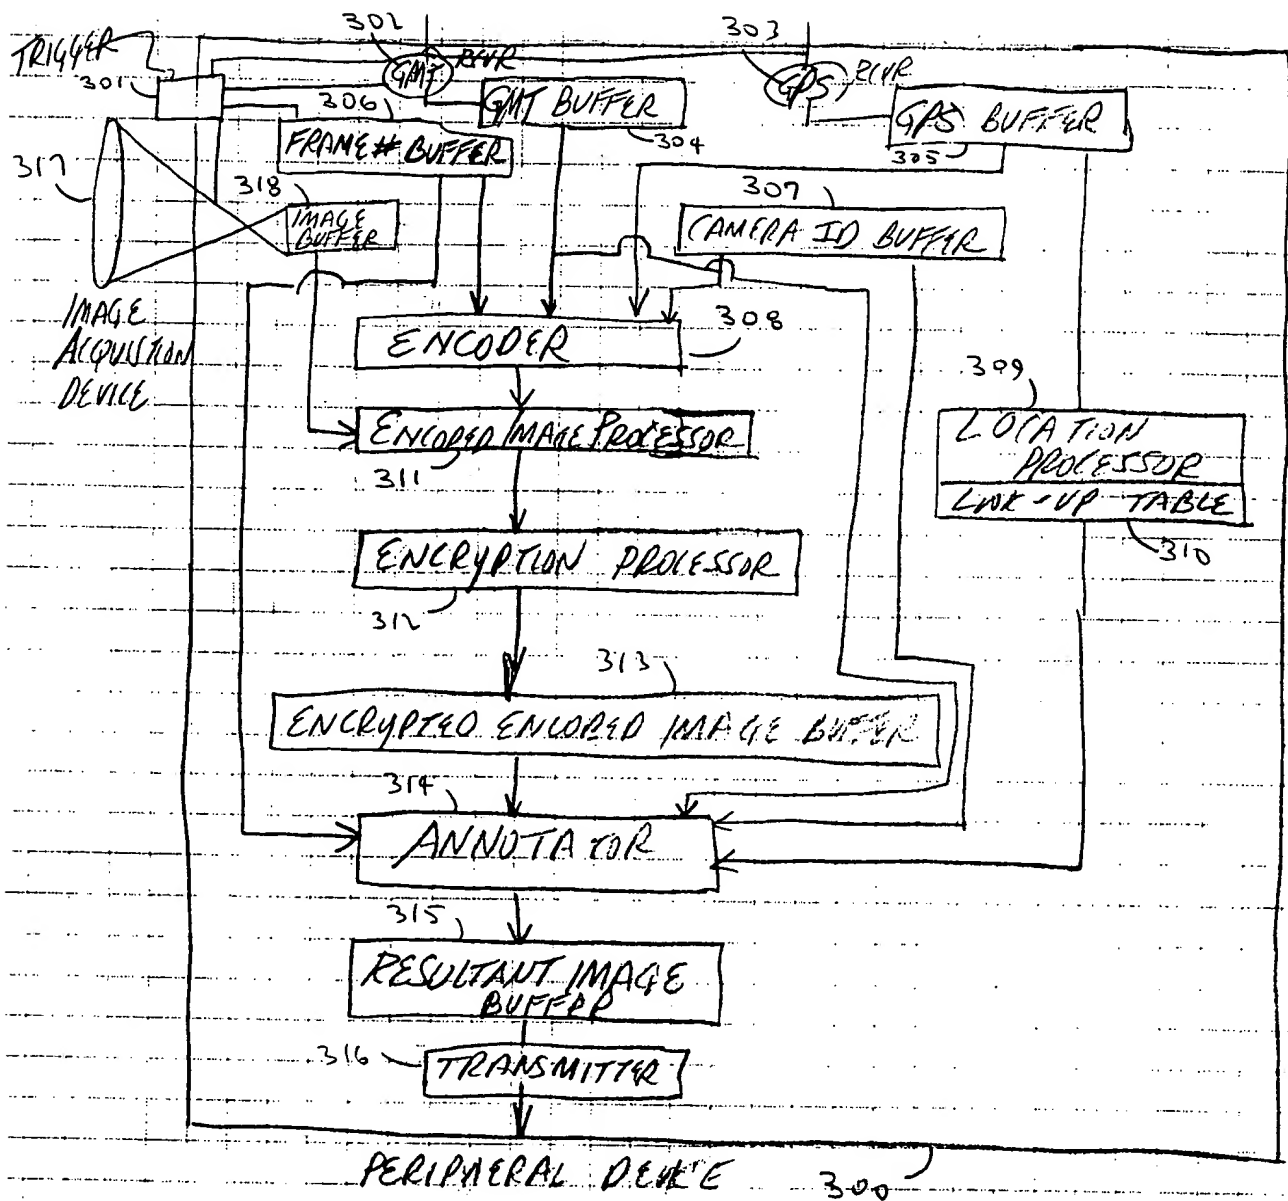 302
303
TRIGGER
301
GMT RCVR
GPS RCVR
306
GMT BUFFER
304
GPS BUFFER
305
FRAME # BUFFER
317
318
IMAGE
BUFFER
307
CAMERA ID BUFFER
IMAGE
ACQUISTION
DEVICE
ENCODER
308
309
LOCATION
PROCESSOR
LOOK-UP TABLE
310
ENCODED IMAGE PROCESSOR
311
ENCRYPTION PROCESSOR
312
313
ENCRYPTED ENCODED IMAGE BUFFER
314
ANNOTATOR
315
RESULTANT IMAGE
BUFFER
316
TRANSMITTER
PERIPHERAL DEVICE
300